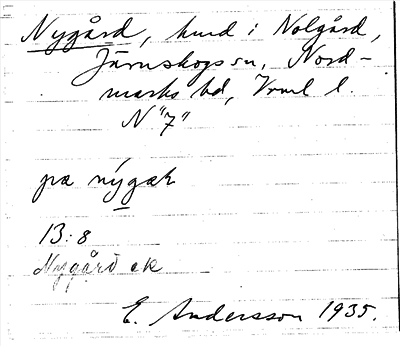 Nygård, hmd i Nolgård,
Järnskogs sn, Nord-
marks hd, Vrml l.
N "7"
pæ nýgaḱ
13:8
Nygård ek
E. Andersson 1935.